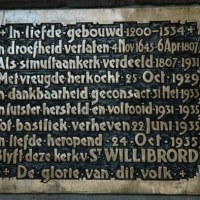 + In liefde gebouwd 1200-1534 +
In droefheid verlaten 4 Nov 1645-6 Apr 1807
Als simultaankerk verdeeld 1807-1931
Met vreugde herkocht 25 Oct 1929
In dankbaarheid geconsacr 31 Mei 1933
In luister hersteld en voltooid 1931-1935
Tot basiliek verheven 22 Juni 1935
In liefde heropend 24 Oct 1935
Blyft deze kerk v. ST WILLIBRORD
+ De glorie van dit volk +